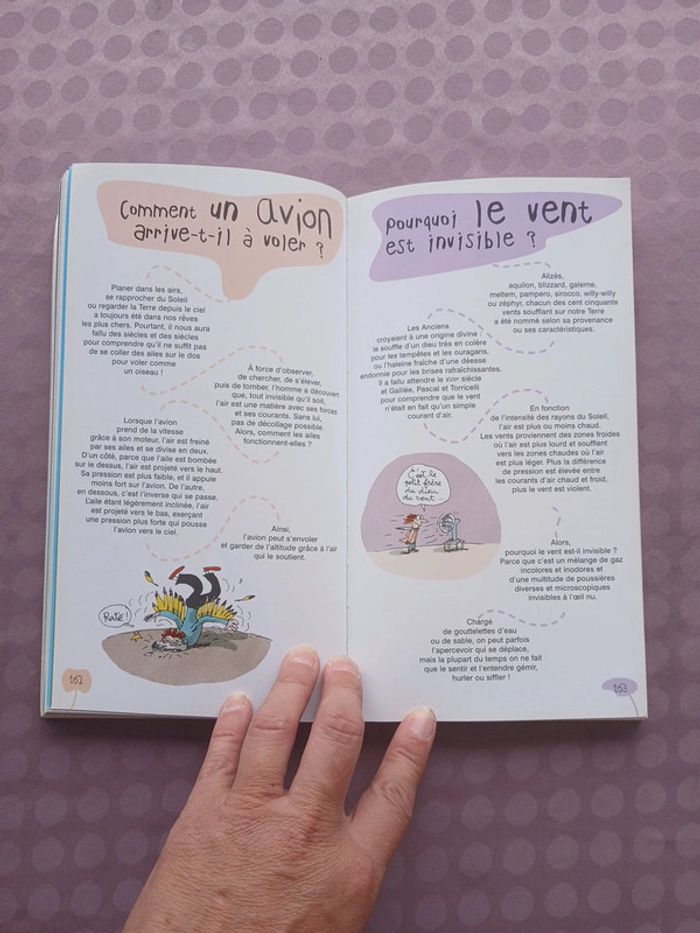 Comment un avion
arrive-t-il à voler ?
Planer dans les airs,
se rapprocher du Soleil
ou regarder la Terre depuis le ciel
a toujours été dans nos rêves
les plus chers. Pourtant, il nous aura
fallu des siècles et des siècles
pour comprendre qu'il ne suffit pas
de se coller des ailes sur le dos
pour voler comme
un oiseau !
À force d'observer,
de chercher, de s'élever,
puis de tomber, l'homme a découvert
que, tout invisible qu'il soit,
l'air est une matière avec ses forces
et ses courants. Sans lui,
pas de décollage possible.
Alors, comment les ailes
fonctionnent-elles ?
Lorsque l'avion
prend de la vitesse
grâce à son moteur, l'air est freiné
par ses ailes et se divise en deux.
D'un côté, parce que l'aile est bombée
sur le dessus, l'air est projeté vers le haut.
Sa pression est plus faible, et il appuie
moins fort sur l'avion. De l'autre,
en dessous, c'est l'inverse qui se passe.
L'aile étant légèrement inclinée, l'air
est projeté vers le bas, exerçant
une pression plus forte qui pousse
l'avion vers le ciel.
Ainsi,
l'avion peut s'envoler
et garder de l'altitude grâce à l'air
qui le soutient.
Raté !
162
pourquoi le vent
est invisible ?
Alizés,
aquilon, blizzard, galerne,
meltem, pampero, sirocco, willy-willy
ou zéphyr, chacun des cent cinquante
vents soufflant sur notre Terre
a été nommé selon sa provenance
ou ses caractéristiques.
Les Anciens
croyaient à une origine divine :
le souffle d'un dieu très en colère
pour les tempêtes et les ouragans,
ou l'haleine fraîche d'une déesse
endormie pour les brises rafraîchissantes.
Il a fallu attendre le XVIIe siècle
et Galilée, Pascal et Torricelli
pour comprendre que le vent
n'était en fait qu'un simple
courant d'air.
En fonction
de l'intensité des rayons du Soleil,
l'air est plus ou moins chaud.
Les vents proviennent des zones froides
où l'air est plus lourd et soufflent
vers les zones chaudes où l'air
est plus léger. Plus la différence
de pression est élevée entre
les courants d'air chaud et froid,
plus le vent est violent.
C'est le
petit frère
du dieu
du vent...
Alors,
pourquoi le vent est-il invisible ?
Parce que c'est un mélange de gaz
incolores et inodores et
d'une multitude de poussières
diverses et microscopiques
invisibles à l'œil nu.
Chargé
de gouttelettes d'eau
ou de sable, on peut parfois
l'apercevoir qui se déplace,
mais la plupart du temps on ne fait
que le sentir et l'entendre gémir,
hurler ou siffler !
163